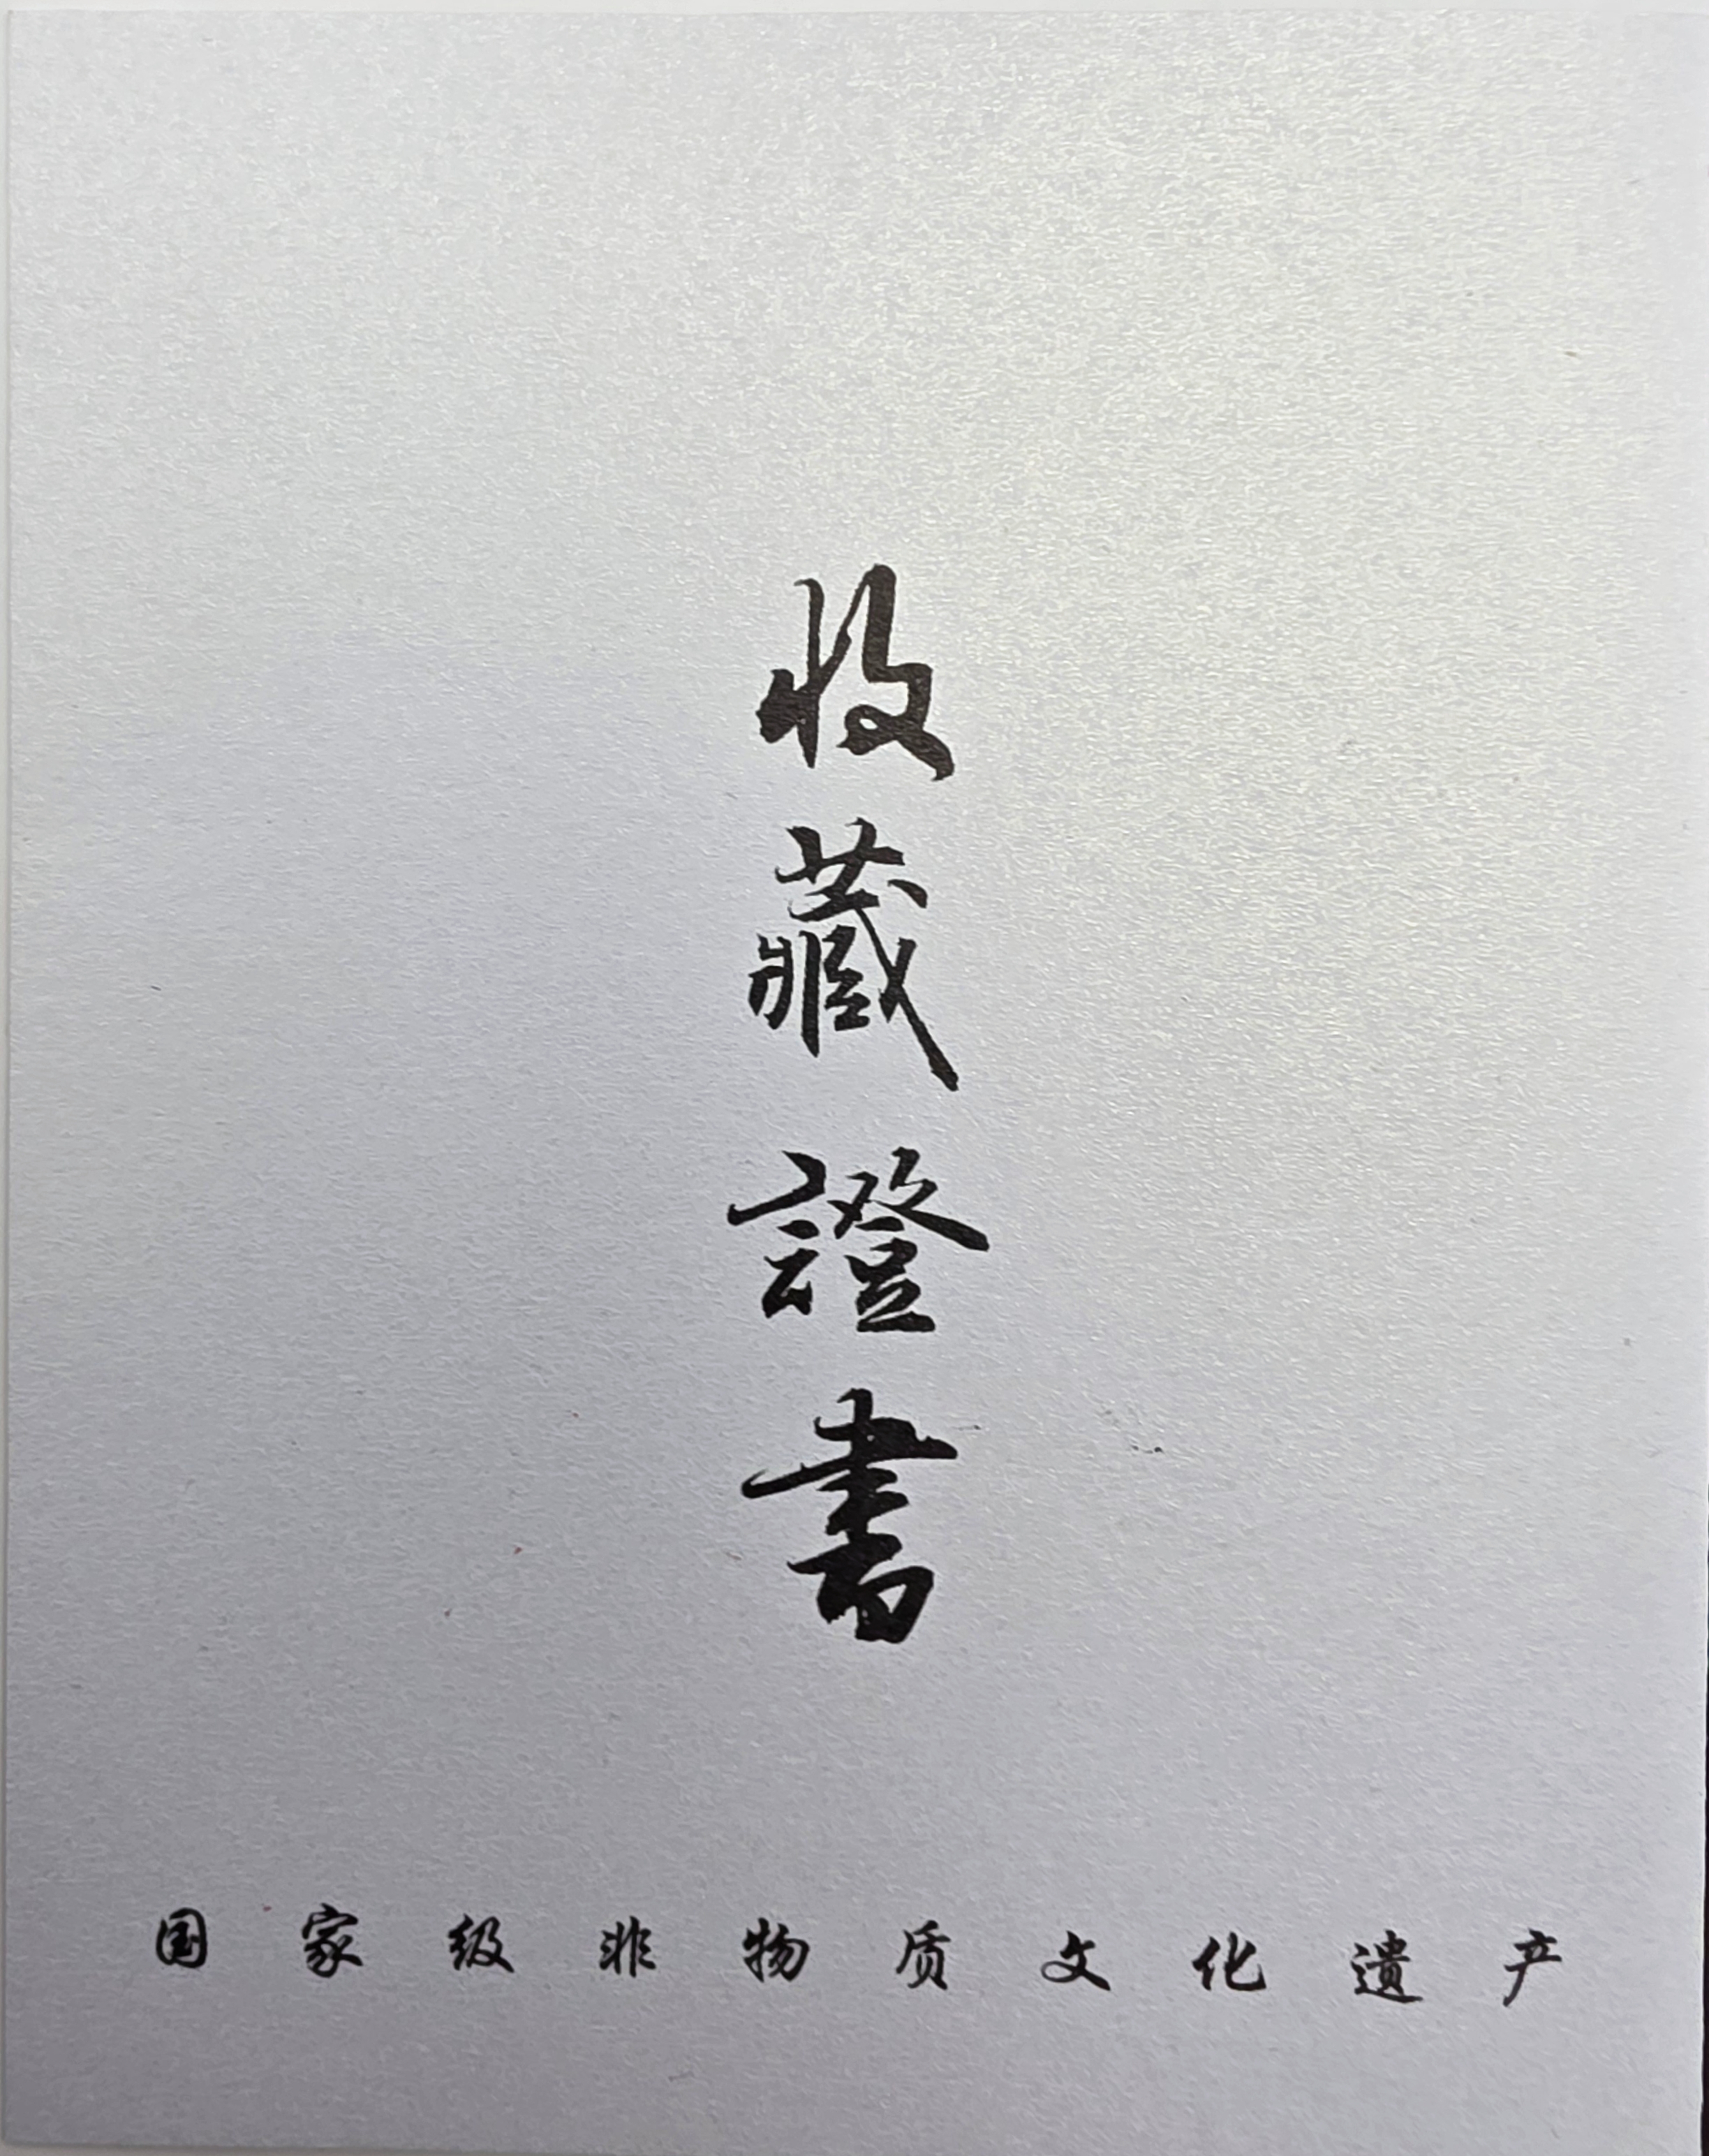 收藏證書
国家级非物质文化遗产